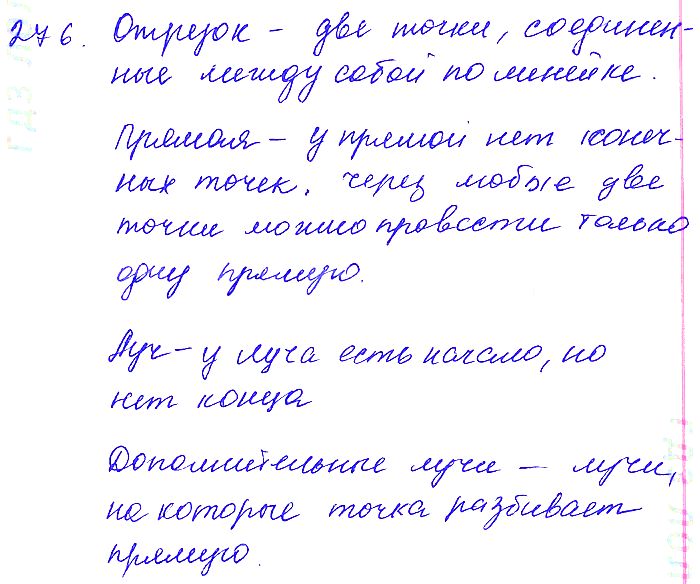 276. Отрезок – две точки, соединен-
ные между собой по линейке.
Прямая – у прямой нет конеч-
ных точек. Через любые две
точки можно провести только
одну прямую.
Луч – у луча есть начало, но
нет конца
Дополнительные лучи – лучи,
на которые точка разбивает
прямую.